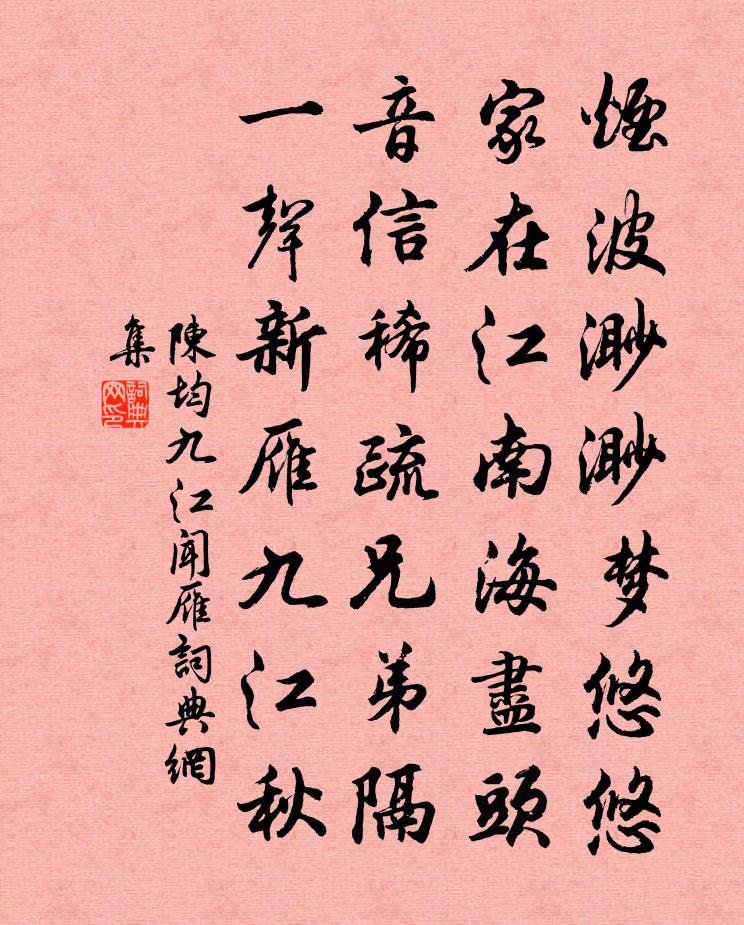 煙波渺渺梦悠悠
家在江南海盡頭
音信稀疏兄弟隔
一聲新雁九江秋
陳均九江闻雁詞典網
集
詞典
网印